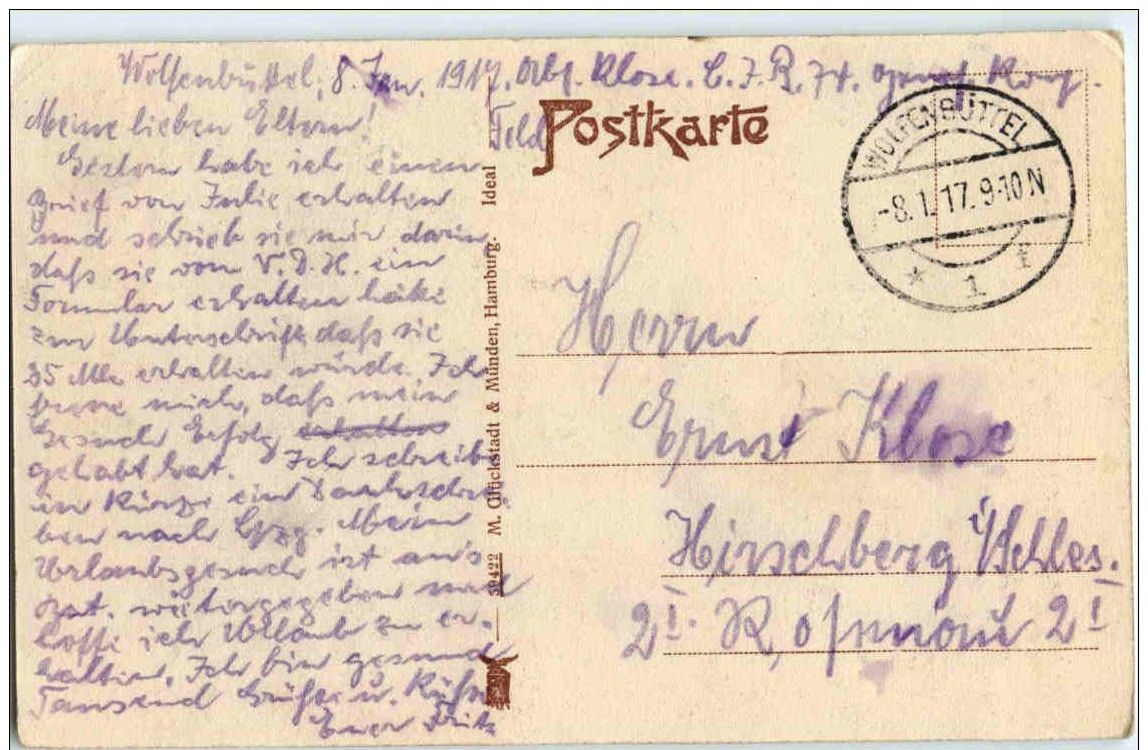 Wolfenbüttel, 8. Jan. 1917. Abs. Klose. E. I. R. 74. Genes. Komp.
Feld
Postkarte
Meine lieben Eltern!
Gestern habe ich einen
Brief von Julie erhalten
und schrieb sie mir darin
daß sie vom V. D. H. ein
Formular erhalten hätte
zur Unterschrift daß sie
35 Mk. erhalten würde. Ich
freue mich, daß mein
Gesuch Erfolg erhalten
gehabt hat. Ich schreibe
in Kürze ein Dankschrei-
ben nach Lpzg. Mein
Urlaubsgesuch ist am 5.
weitergegeben und
hoffe ich Urlaub zu er-
halten. Ich bin gesund
Tausend Grüße u. Küsse
Euer Fritz
39422 M. Glückstadt & Münden, Hamburg. Ideal
WOLFENBÜTTEL
-8.1.17.9-10N
* 1 f
Herrn
Ernst Klose
Hirschberg i/Schles.
2I.
2I